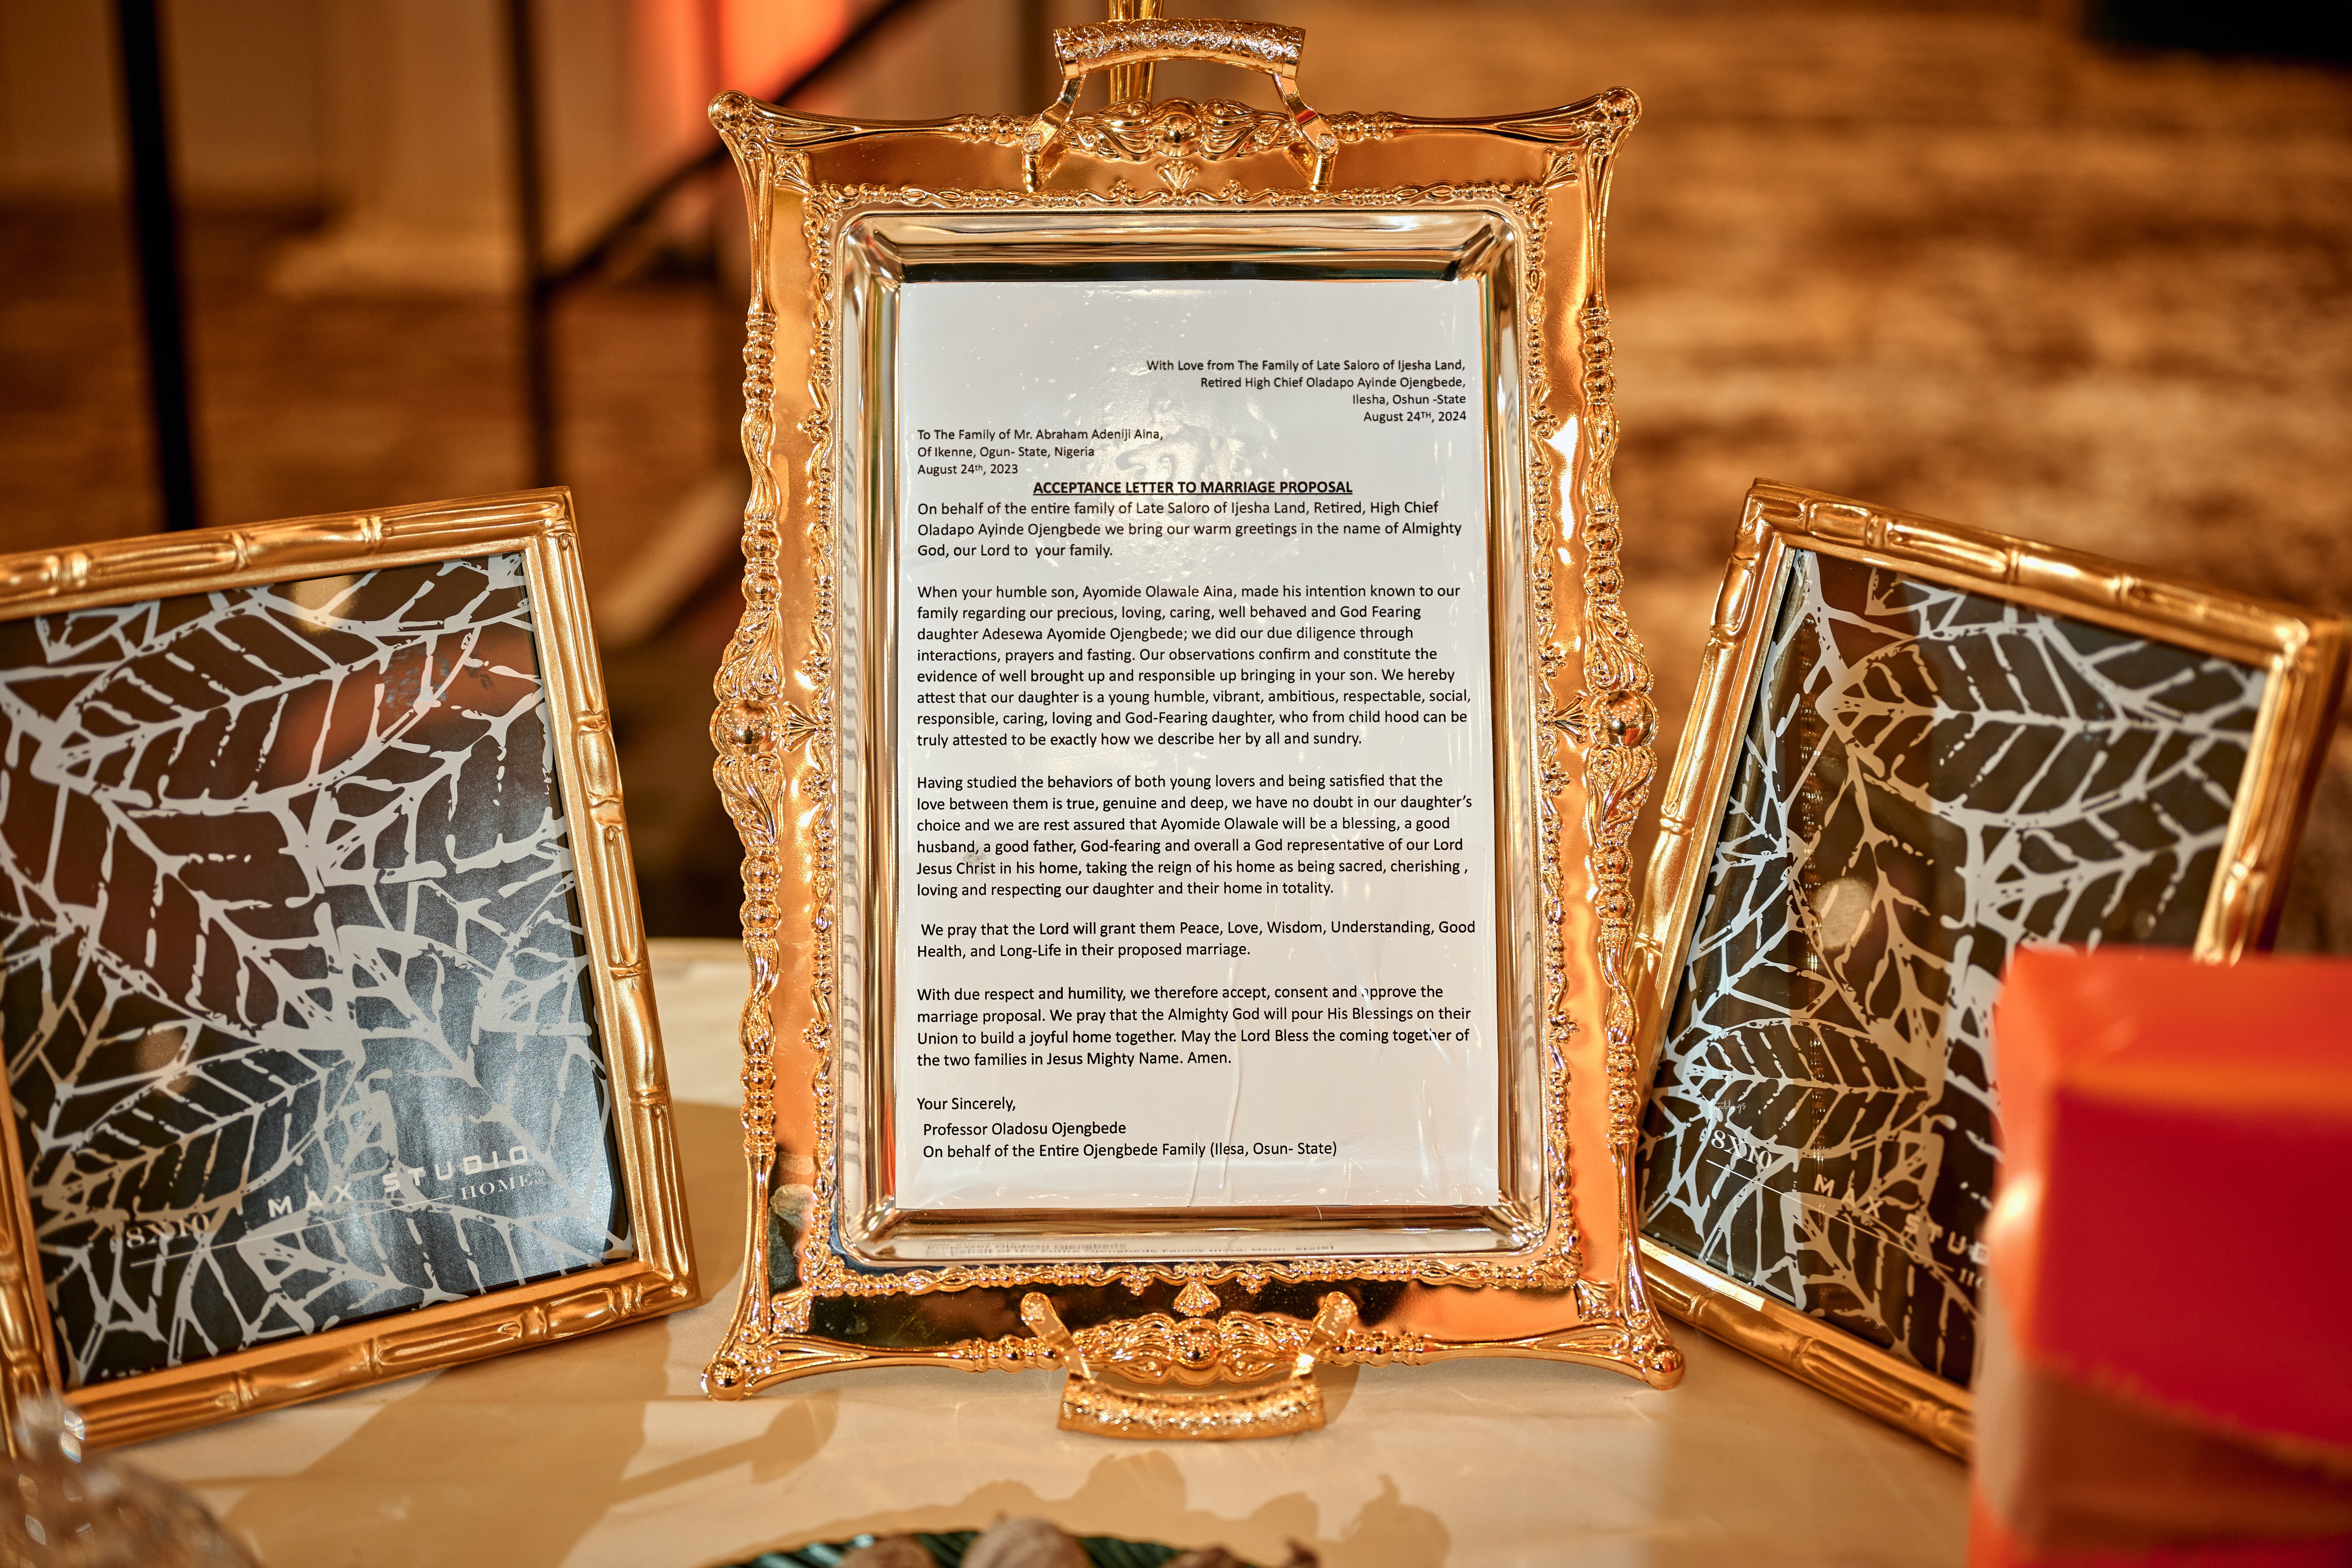 With Love from The Family of Late Saloro of Ijesha Land,
Retired High Chief Oladapo Ayinde Ojengbede,
Ilesha, Oshun -State
August 24TH, 2024
To The Family of Mr. Abraham Adeniji Aina,
Of Ikenne, Ogun- State, Nigeria
August 24th, 2023
ACCEPTANCE LETTER TO MARRIAGE PROPOSAL
On behalf of the entire family of Late Saloro of Ijesha Land, Retired, High Chief
Oladapo Ayinde Ojengbede we bring our warm greetings in the name of Almighty
God, our Lord to your family.
When your humble son, Ayomide Olawale Aina, made his intention known to our
family regarding our precious, loving, caring, well behaved and God Fearing
daughter Adesewa Ayomide Ojengbede; we did our due diligence through
interactions, prayers and fasting. Our observations confirm and constitute the
evidence of well brought up and responsible up bringing in your son. We hereby
attest that our daughter is a young humble, vibrant, ambitious, respectable, social,
responsible, caring, loving and God-Fearing daughter, who from child hood can be
truly attested to be exactly how we describe her by all and sundry.
Having studied the behaviors of both young lovers and being satisfied that the
love between them is true, genuine and deep, we have no doubt in our daughter's
choice and we are rest assured that Ayomide Olawale will be a blessing, a good
husband, a good father, God-fearing and overall a God representative of our Lord
Jesus Christ in his home, taking the reign of his home as being sacred, cherishing ,
loving and respecting our daughter and their home in totality.
We pray that the Lord will grant them Peace, Love, Wisdom, Understanding, Good
Health, and Long-Life in their proposed marriage.
With due respect and humility, we therefore accept, consent and approve the
marriage proposal. We pray that the Almighty God will pour His Blessings on their
Union to build a joyful home together. May the Lord Bless the coming together of
the two families in Jesus Mighty Name. Amen.
Your Sincerely,
Professor Oladosu Ojengbede
On behalf of the Entire Ojengbede Family (Ilesa, Osun- State)
MAX STUDIO
HOME
8X10
8X10
MAX STUD